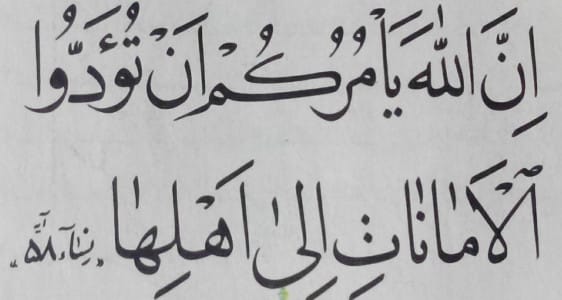 اِنَّ اللّٰهَ يَأْمُرُكُمْ اَنْ تُؤَدُّوا
الْاَمٰانٰاتِ اِلىٰ اَهْلِهٰا «نساء، آیۀ ۵۸»